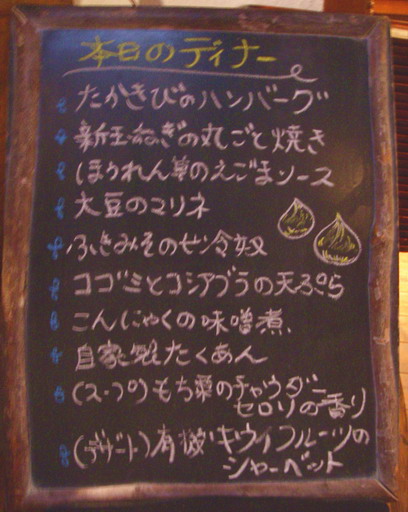 本日のディナー
たかきびのハンバーグ
新玉ねぎの丸ごと焼き
ほうれん草のえごまソース
大豆のマリネ
ふきみそのせ冷奴
コゴミとコシアブラの天ぷら
こんにゃくの味噌煮、
自家製たくあん
(スープ)もち粟のチャウダー
セロリの香り
(デザート)有機キウイフルーツの
シャーベット